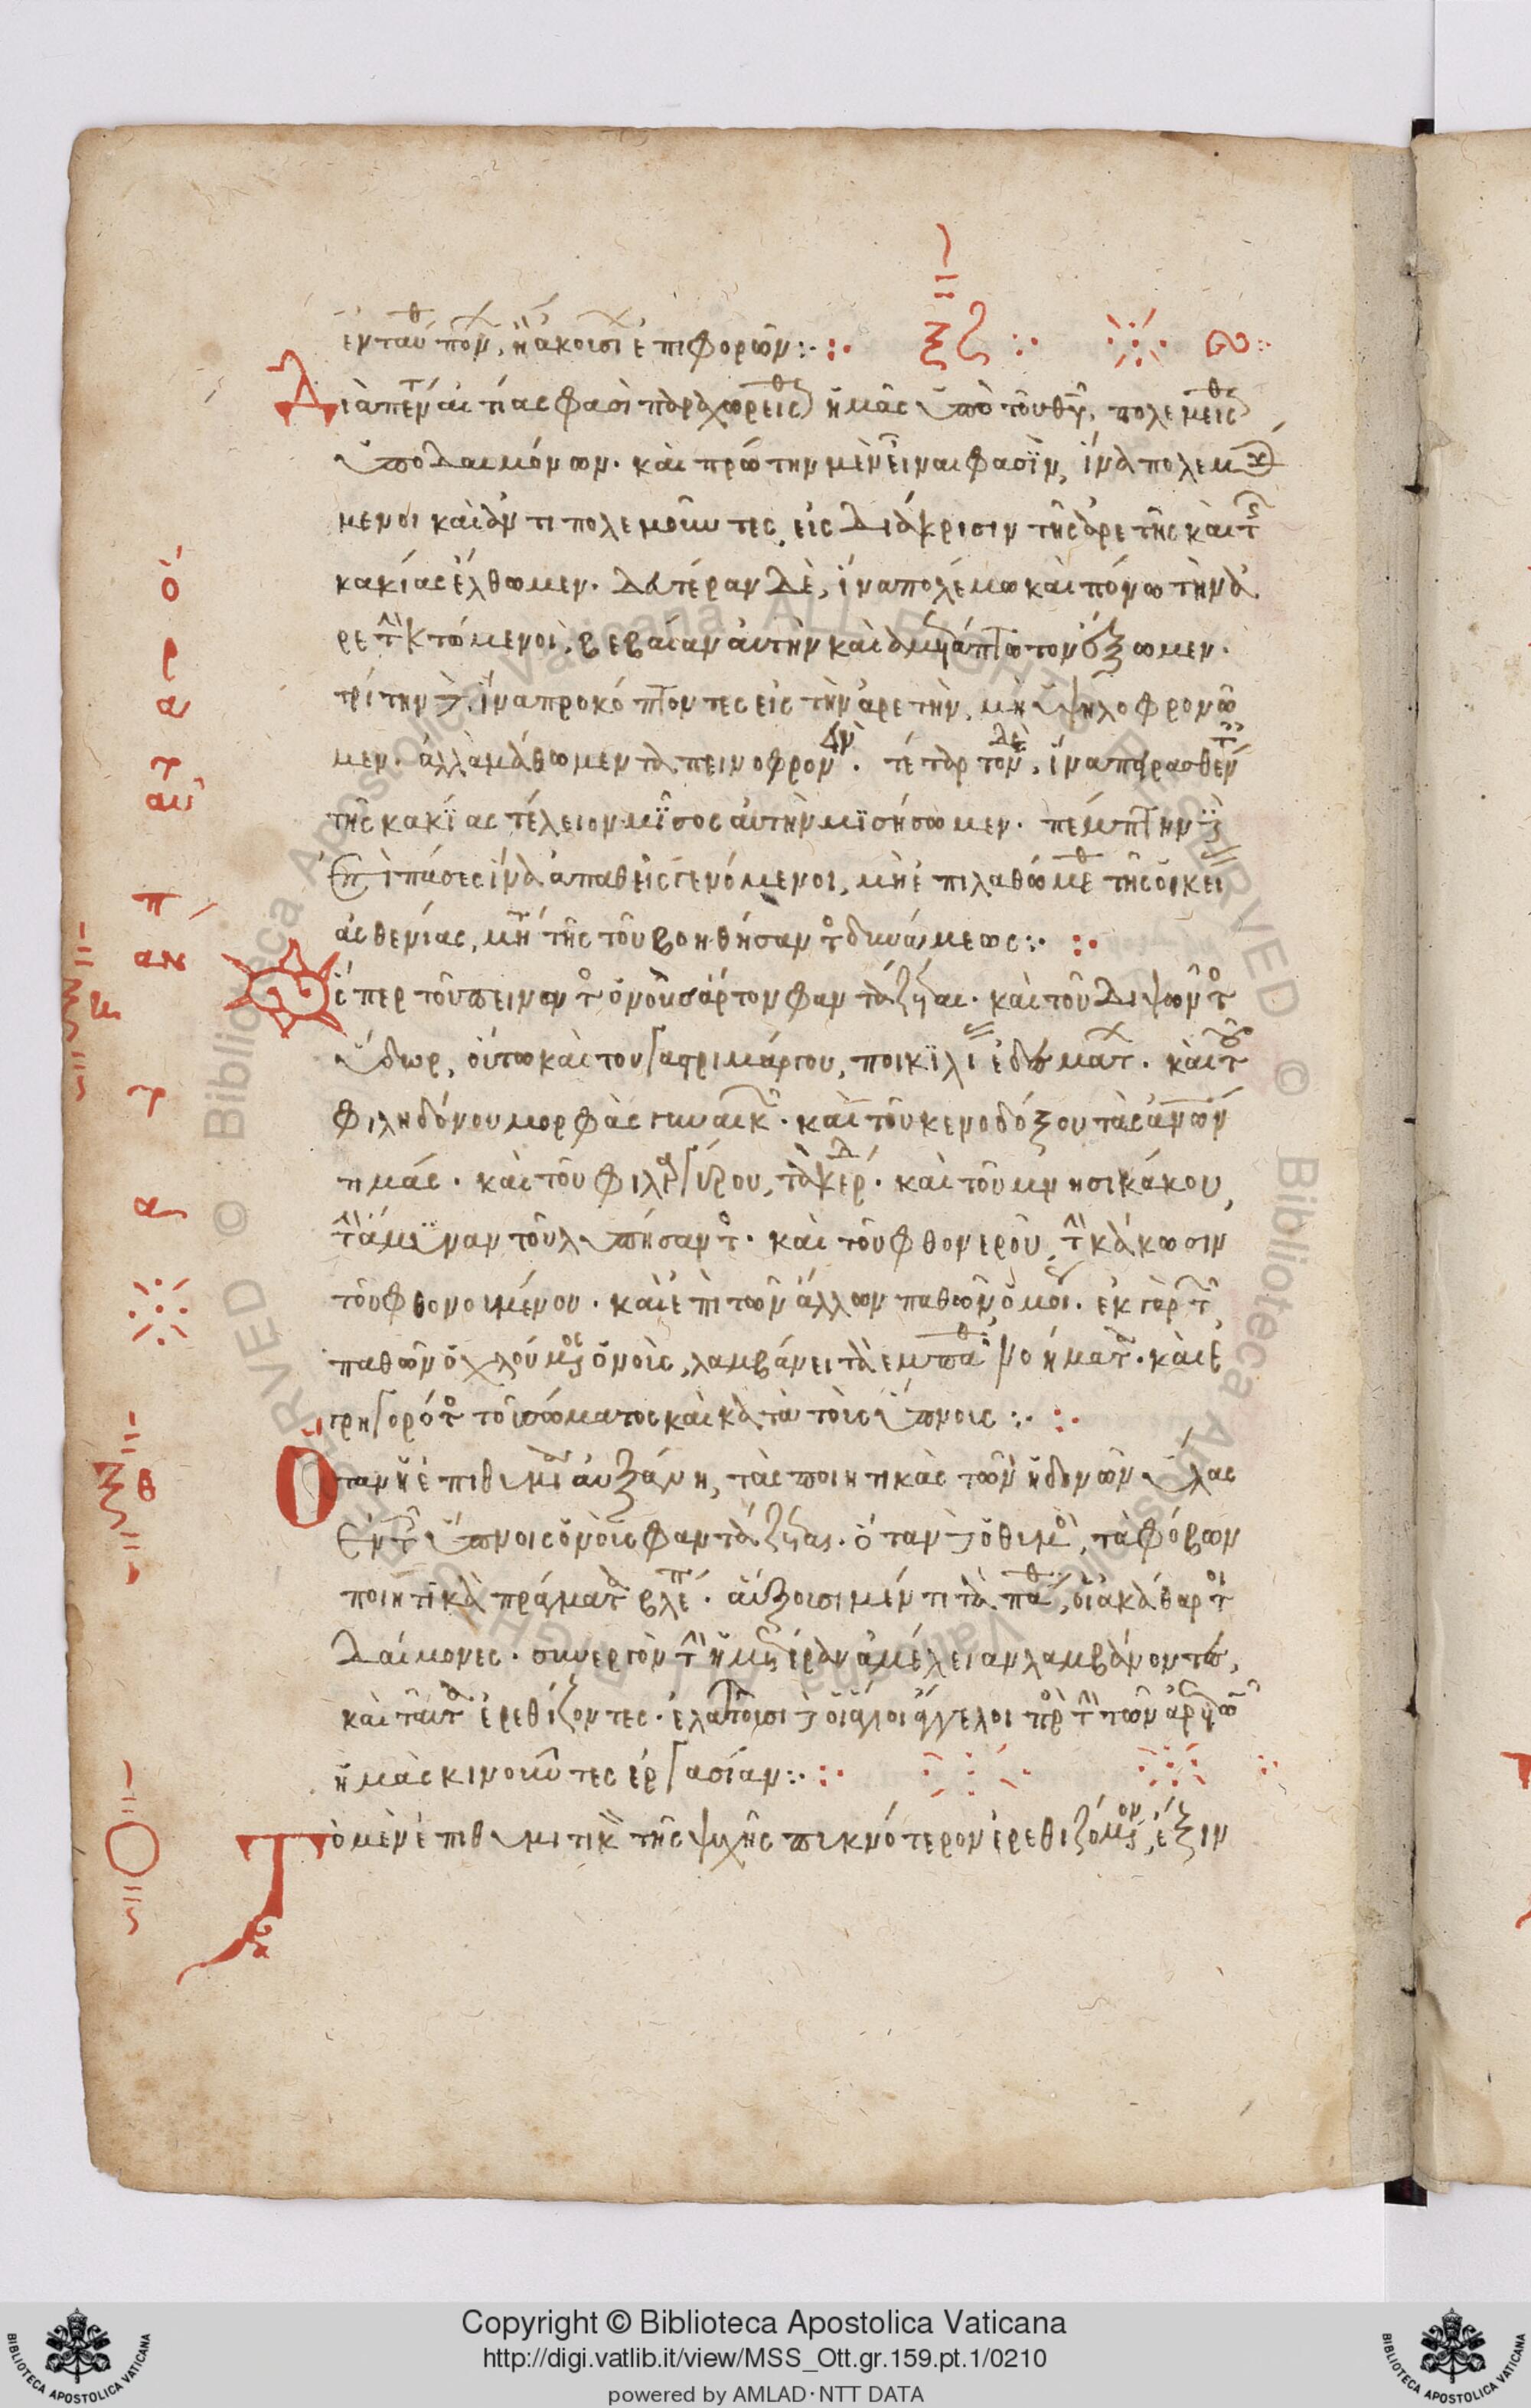 ἐνταῦθ πον, ἢ ἀκούσῃ ἐπιφορῶν:· ξζ
Διὰ πέντε αἰτίας φασὶ παραχωρεῖσθαι ἡμᾶς ὑπὸ τοῦ θυ, πολεμεῖσθαι
ὑπὸ δαιμόνων. καὶ πρώτην μὲν εἶναι φασὶν, ἵνα πολεμού
μενοι καὶ ἀντιπολεμοῦντες, εἰς διάκρισιν τῆς ἀρετῆς καὶ τῆς
κακίας ἔλθωμεν. δευτέραν δὲ, ἵνα πολέμω καὶ πόνω τὴν ἀ
ρετὴν κτώμενοι, βεβαίαν αὐτὴν καὶ ἀμετάπτωτον ἕξωμεν.
τρίτην δὲ, ἵνα προκόπτοντες εἰς τὴν ἀρετὴν, μὴ ὑψηλοφρονῶ
μεν. ἀλλὰ μάθωμεν ταπεινοφρονεῖν. τετάρτην δὲ, ἵνα πειρασθέντες
τῆς κακίας τέλειον μῖσος αὐτὴν μισήσωμεν. πέμπτην δὲ
ἐπὶ πάσες ἵνα ἀπαθεῖς γενόμενοι, μὴ ἐπιλαθώμεθα τῆς οἰκεί
ασθενίας, μήτε τῆς τοῦ βοηθήσαντος δυνάμεως:·
Ὥσπερ τοῦ πεινῶντος ὁ νοῦς ἄρτον φαντάζεται. καὶ τοῦ διψῶντος
ὕδωρ, οὕτω καὶ τοῦ γαστριμάργου, ποικίλ ἐδεσμάτων. καὶ τοῦ
φιληδόνου μορφὰς γυναικῶν. καὶ τοῦ κενοδόξου τὰς ἀνων
τιμάς. καὶ τοῦ φιλαργύρου, τὰ κέρδ. καὶ τοῦ μνησικάκου,
τὴν ἄμυναν τοῦ λυπήσαντος. καὶ τοῦ φθονεροῦ, τὴν κάκωσιν
τοῦ φθονουμένου. καὶ ἐπὶ τῶν ἄλλων παθῶν ὁμοίως. ἐκ γὰρ τῶν
παθῶν ὀχλούμενος ὁ νοῦς, λαμβάνει τὰ ἐμπαθ νοήματα. καὶ ἐ
γρηγορότος τοῦ σώματος καὶ κατὰ τοὺς ὕπνους:·
Ὅταν ἡ ἐπιθυμία αὐξάνη, τὰς ποιητικὰς τῶν ἡδονῶν ὕλας
ἐν τοῖς ὕπνοις ὁ νοῦς φαντάζεται. ὅταν δὲ ὁ θυμὸς, τὰ φόβων
ποιητικὰ πράγματα βλέπ. αὔξουσι μέντι τὰ πάθ, οἱ ἀκάθαρτοι
δαίμονες. συνεργὸν τὴν ἡμετέραν ἀμέλειαν λαμβάνοντες,
καὶ ταῦτα ἐρεθίζοντες. ἐλαττοῦσι δὲ οἱ ἅγιοι ἄγγελοι πρὸς τὴν τῶν ἀρετῶν
ἡμᾶς κινοῦντες ἐργασίαν:·
Τὸ μὲν ἐπιθυμιτικὸν τῆς ψυχῆς πυκνότερον ἐρεθιζόμενον, ἕξιν
Copyright © Biblioteca Apostolica Vaticana
http://digi.vatlib.it/view/MSS_Ott.gr.159.pt.1/0210
powered by AMLAD·NTT DATA